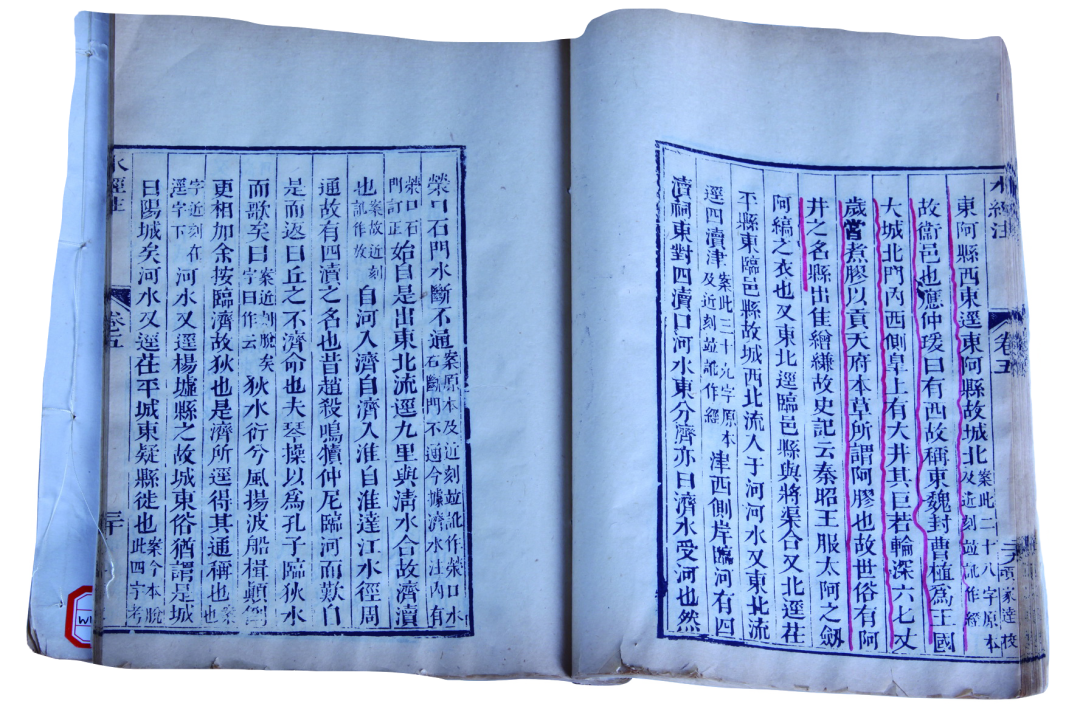 水經注
卷五
東阿縣西東逕東阿縣故城北案此二十八字原本及近刻竝訛作經
故衞邑也應仲瑗曰有西故稱東魏封曹植爲王國
大城北門內西側臯上有大井其巨若輪深六七丈
歲嘗煮膠以貢天府本草所謂阿膠也故世俗有阿
井之名縣出佳繒縑故史記云秦昭王服太阿之劔
阿縞之衣也又東北逕臨邑縣與將渠合又北逕茌
平縣東臨邑縣故城西北流入于河河水又東北流
逕四瀆津案此三十九字原本及近刻竝訛作經津西側岸臨河有四
瀆祠東對四瀆口河水東分濟亦曰濟水受河也然
滎口石門水斷不通案原本及近刻竝訛作滎口水石斷門不通今據濟水注內有
滎口石門訂正始自是出東北流逕九里與清水合故濟瀆
也案故近刻訛作放自河入濟自濟入淮自淮達江水徑周
通故有四瀆之名也昔趙殺鳴犢仲尼臨河而歎自
是而返曰丘之不濟命也夫琴操以爲孔子臨狄水
而歌矣曰案近刻脫矣字曰作云狄水衍兮風揚波船楫顛倒
更相加余按臨濟故狄也是濟所逕得其通稱也案也
字近刻在逕字下河水又逕楊墟縣之故城東俗猶謂是城
曰陽城矣河水又逕茌平城東疑縣徙也案今本脫此四字考
水經注
卷五
三十